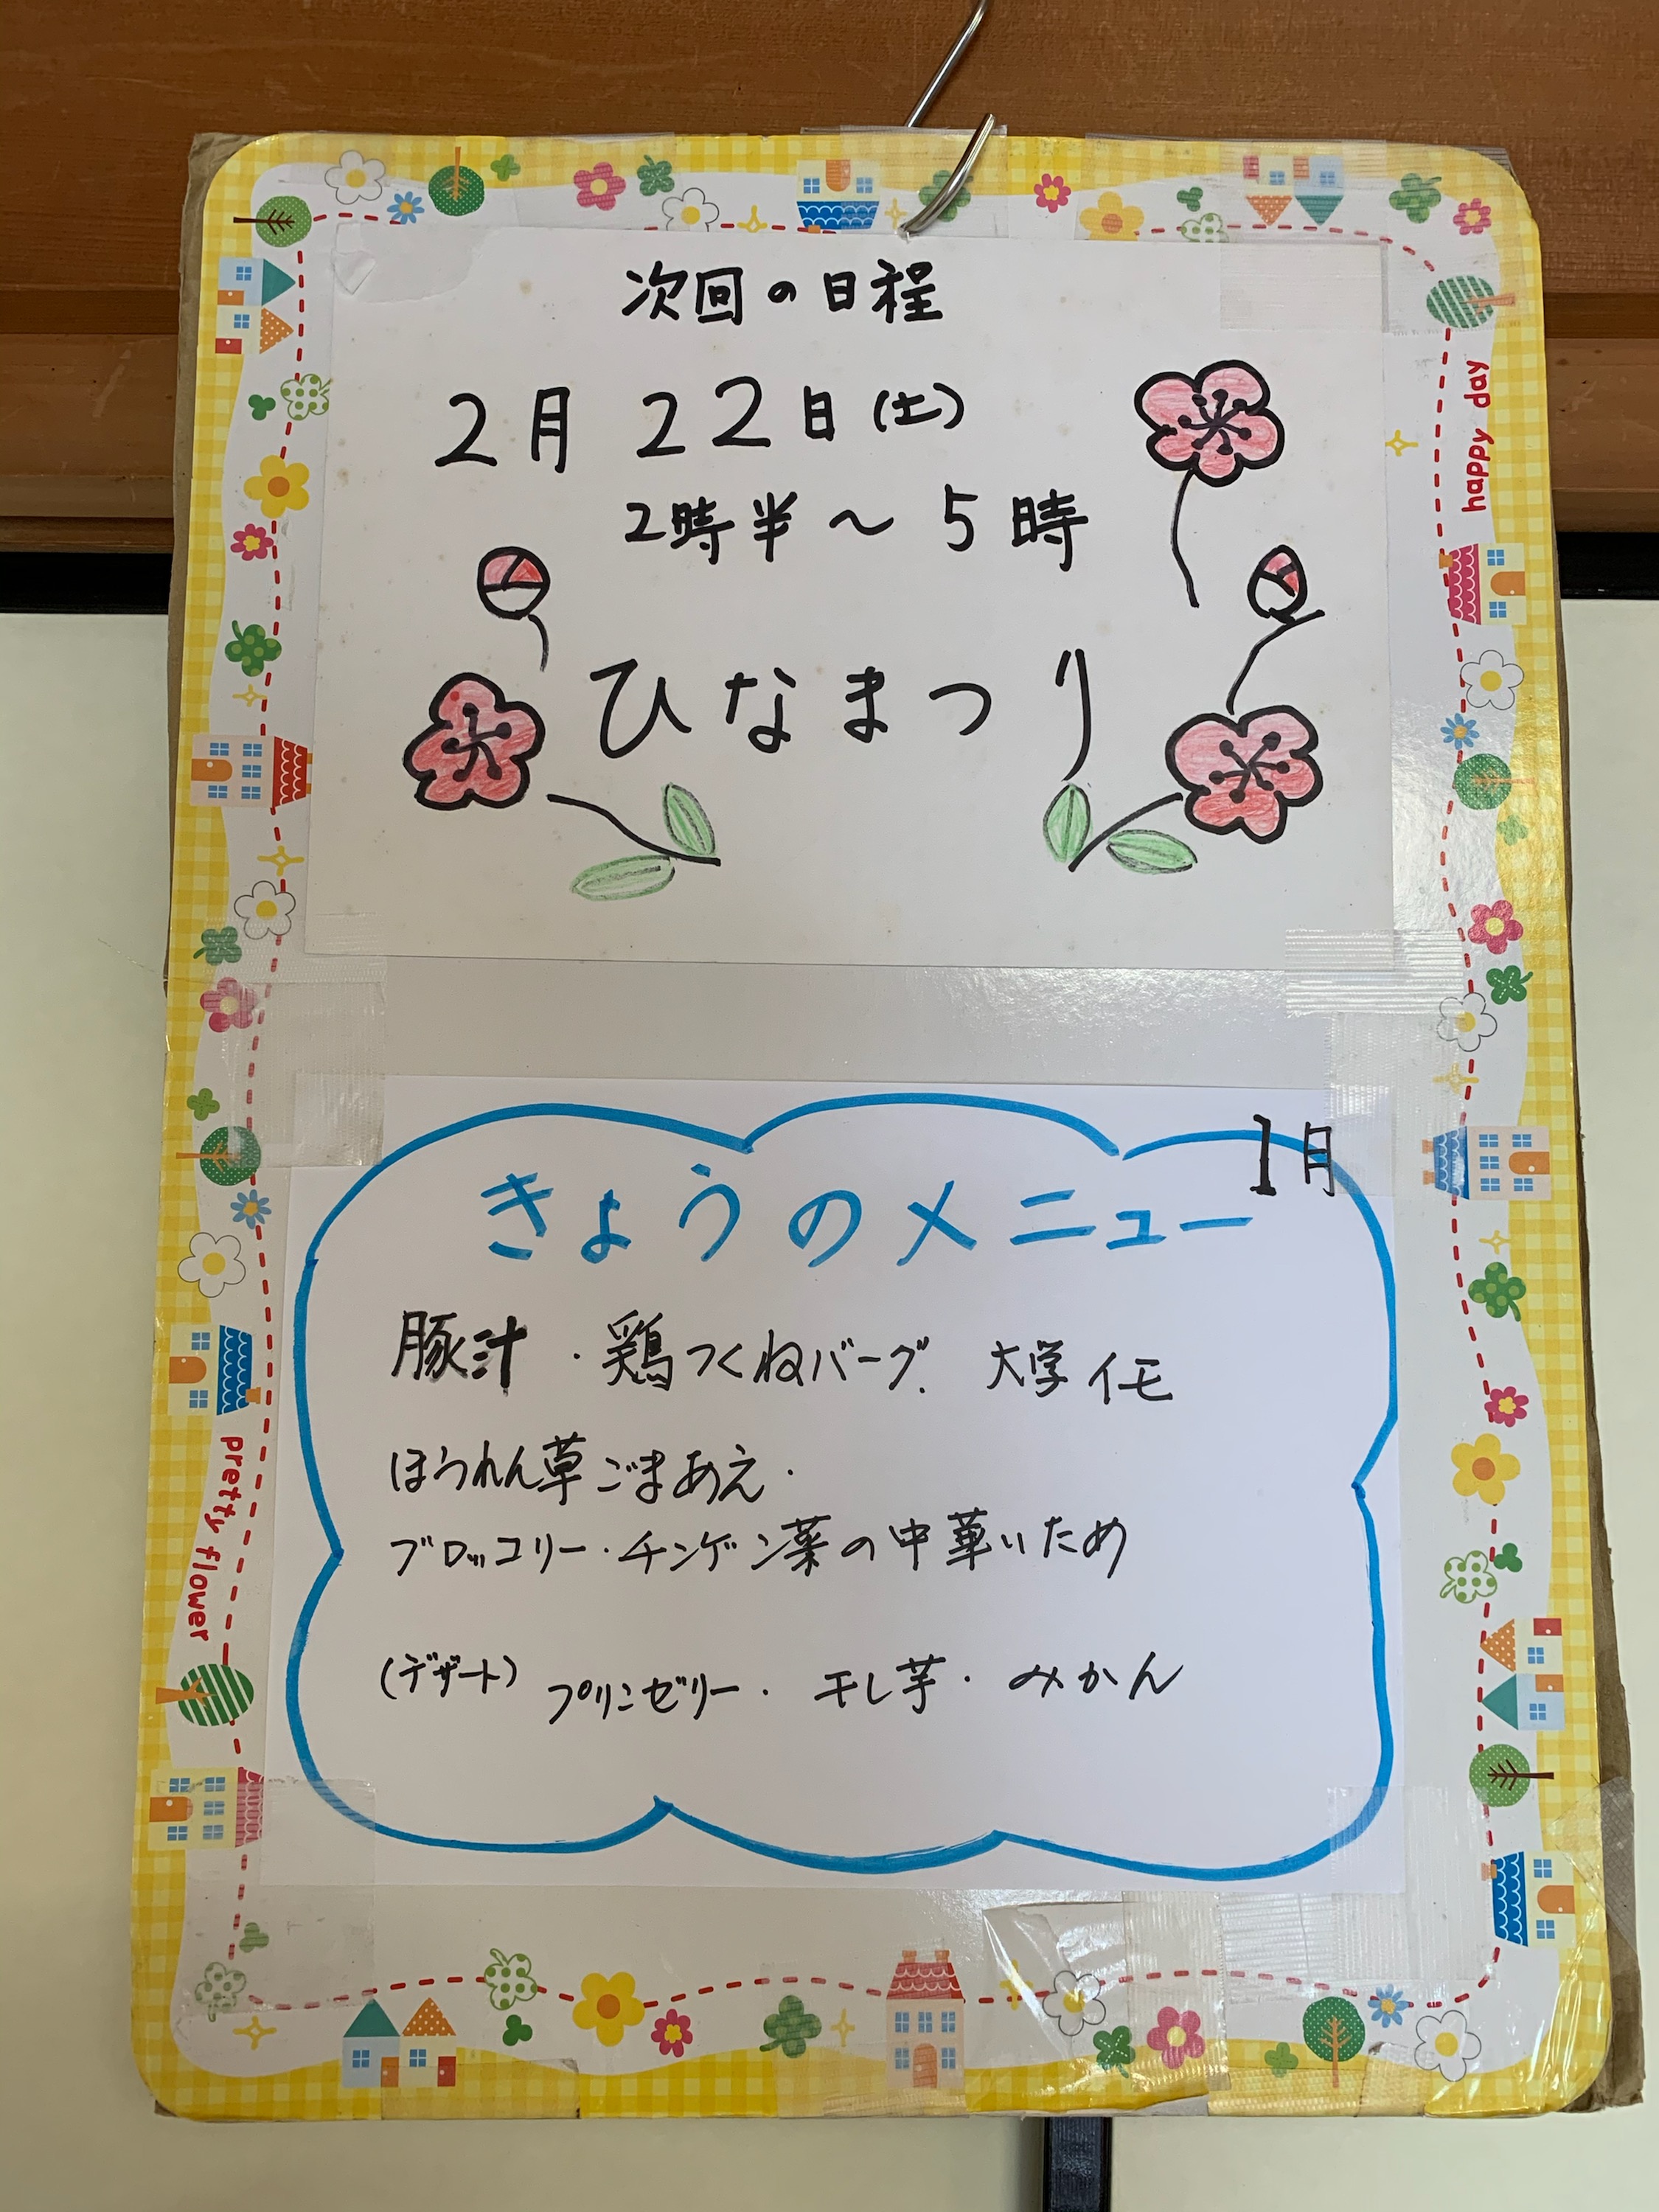 次回の日程
2月22日(土)
2時半～5時
ひなまつり
happy day
1月
きょうのメニュー
豚汁・鶏つくねバーグ. 大学イモ
ほうれん草ごまあえ・
ブロッコリー・チンゲン菜の中華いため
(デザート) プリンゼリー・干し芋・みかん
pretty flower